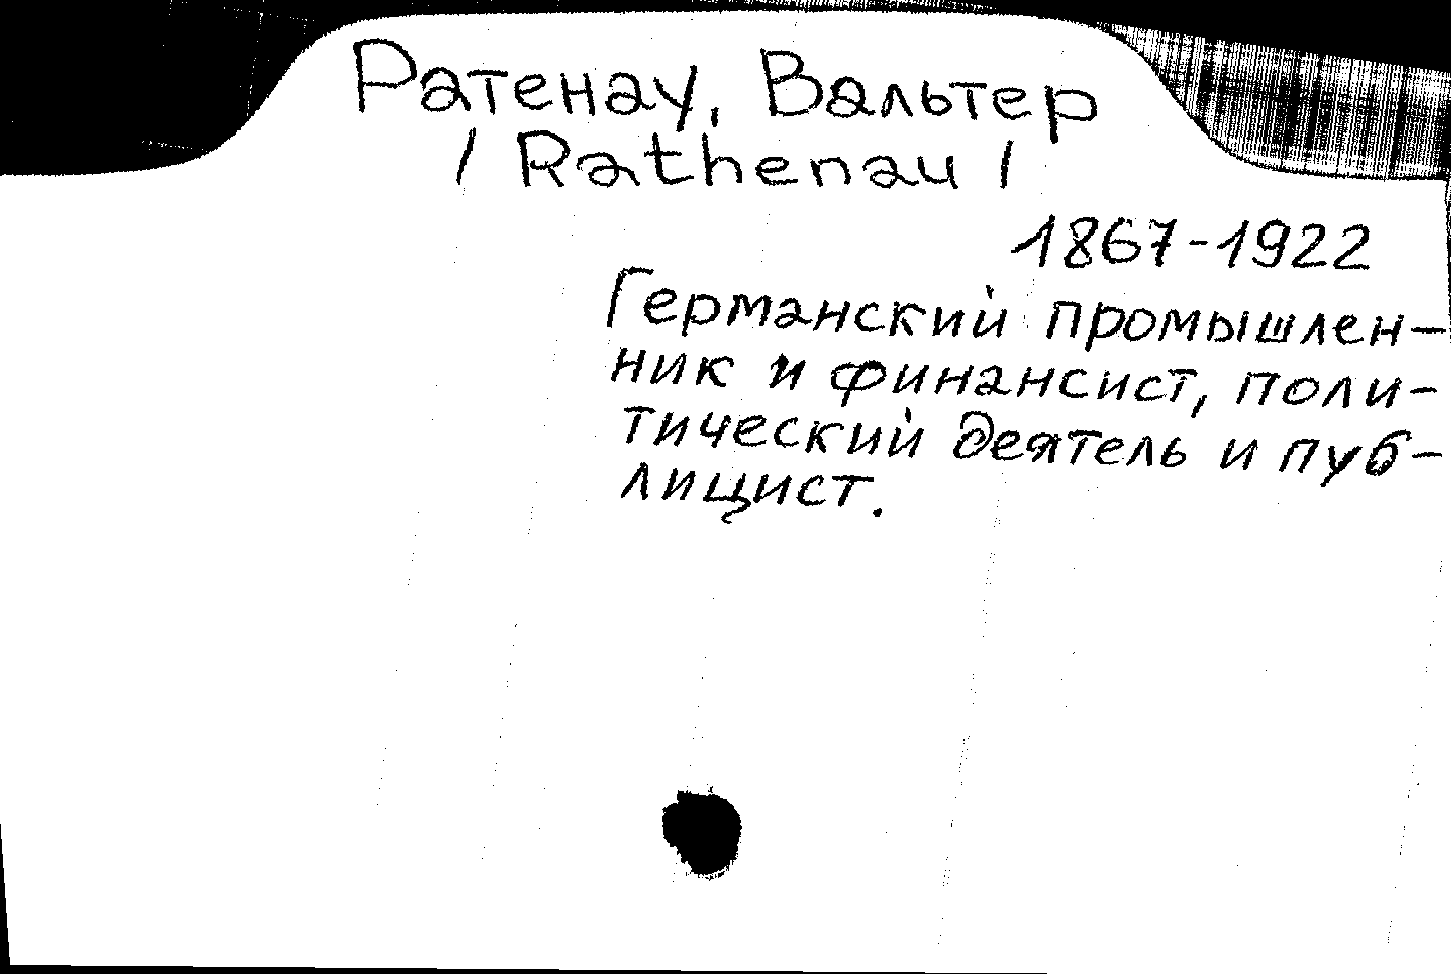 Ратенау, Вальтер
/ Rathenau /
1867-1922
Германский промышлен-
ник и финансист, поли-
тический деятель и пуб-
лицист.